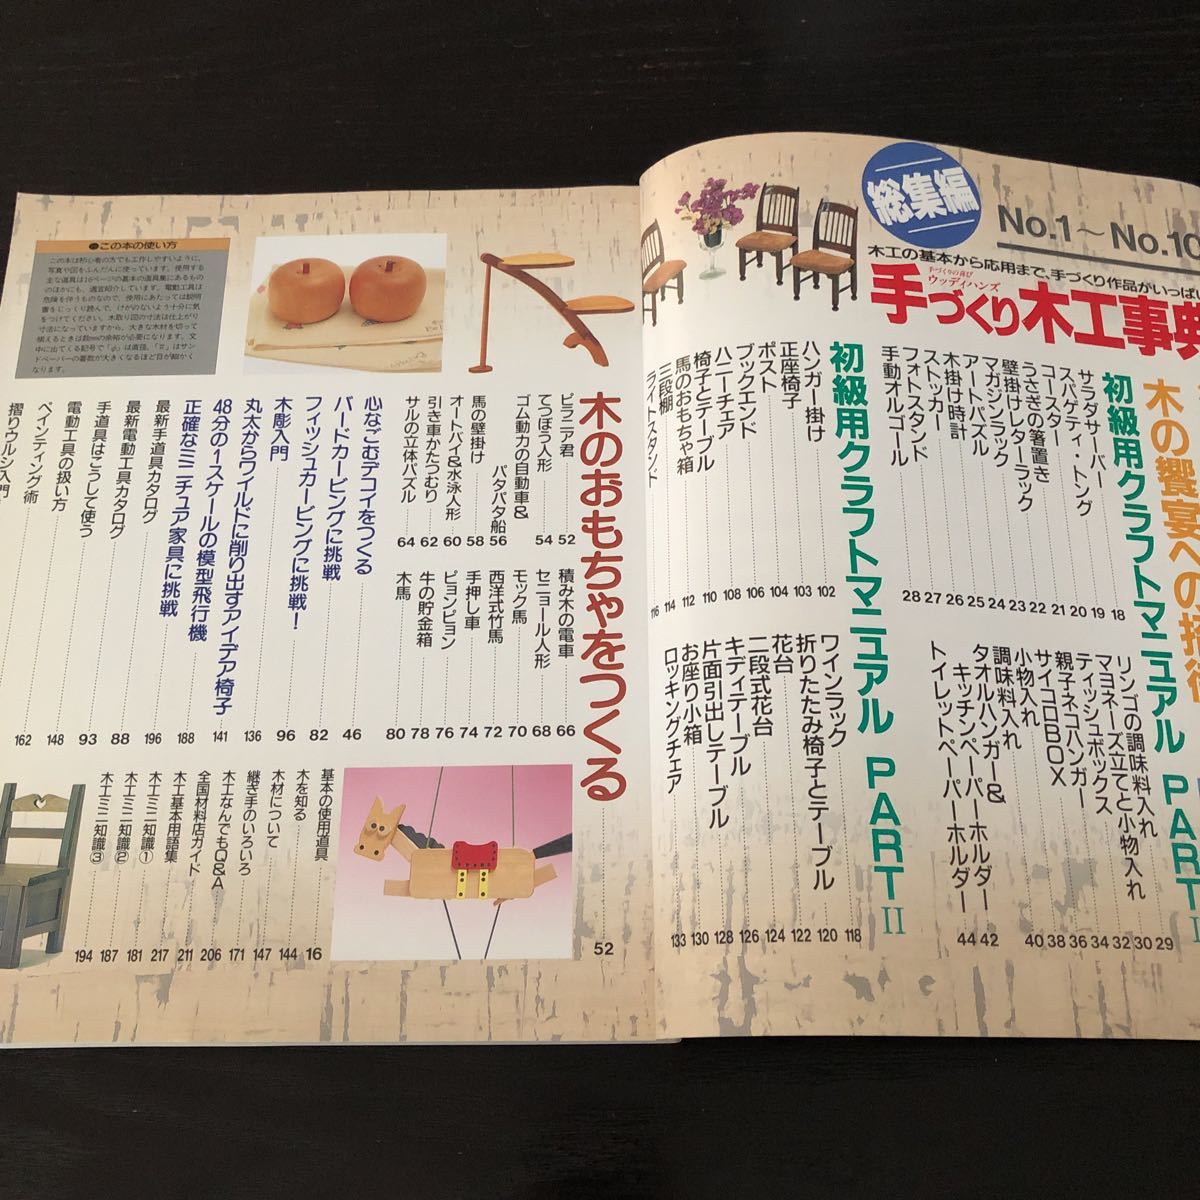 総集編
No.1〜No.10
木工の基本から応用まで、手づくり作品がいっぱい
手づくりの喜び
ウッディハンズ
手づくり木工事典
木の饗宴への招待
初級用クラフトマニュアル PART I
サラダサーバー 18
スパゲティ・トング 19
コースター 20
うさぎの箸置き 21
壁掛けレターラック 22
マガジンラック 23
アートパズル 24
木掛け時計 25
ストッカー 26
フォトスタンド 27
手動オルゴール 28
リンゴの調味料入れ 29
マヨネーズ立てと小物入れ 30
ティッシュボックス 32
親子ネコハンガー 34
サイコロBOX 36
小物入れ 38
調味料入れ 40
タオルハンガー&
キッチンペーパーホルダー 42
トイレットペーパーホルダー 44
初級用クラフトマニュアル PART II
ハンガー掛け 102
正座椅子 103
ポスト 104
ブックエンド 106
ハニーチェア 108
椅子とテーブル 110
馬のおもちゃ箱 112
三段棚 114
ライトスタンド 116
ワインラック 118
折りたたみ椅子とテーブル 120
花台 122
二段式花台 124
キディテーブル 126
片面引出しテーブル 128
お座り小箱 130
ロッキングチェア 133
木のおもちゃをつくる 52
ピラニア君 52
てつぼう人形 54
ゴム動力の自動車&
パタパタ船 56
馬の壁掛け 58
オートバイ&水泳人形 60
引き車かたつむり 62
サルの立体パズル 64
積み木の電車 66
セニョール人形 68
モック馬 70
西洋式竹馬 72
手押し車 74
ピョンピョン 76
牛の貯金箱 78
木馬 80
心なごむデコイをつくる
バードカービングに挑戦 46
フィッシュカービングに挑戦! 82
木彫入門 96
丸太からワイルドに削り出すアイデア椅子 136
48分の1スケールの模型飛行機 141
正確なミニチュア家具に挑戦 188
最新手道具カタログ 196
最新電動工具カタログ 88
手道具はこうして使う 93
電動工具の扱い方 148
ペインティング術 162
摺りウルシ入門
基本の使用道具 16
木を知る 144
木材について 147
継ぎ手のいろいろ 171
木工なんでもQ&A 206
全国材料店ガイド 211
木工基本用語集 217
木工ミニ知識① 181
木工ミニ知識② 187
木工ミニ知識③ 194
●この本の使い方
この本は初心者の方でも工作しやすいように、
写真や図をふんだんに使っています。使用する
主な道具は16ページの基本の道具集にあるもの
のほかにも、適宜紹介しています。電動工具は
危険を伴うものなので、使用にあたっては説明
書をじっくり読んで、けがのないよう十分に気
をつけてください。木取り図の寸法は仕上がり
寸法になっていますから、大きな木材を切って
揃えるときは数mmの余裕が必要になります。文
中に出てくる記号で「φ」は直径、「#」はサン
ドペーパーの番数が大きくなるほど目が細かく
なります。